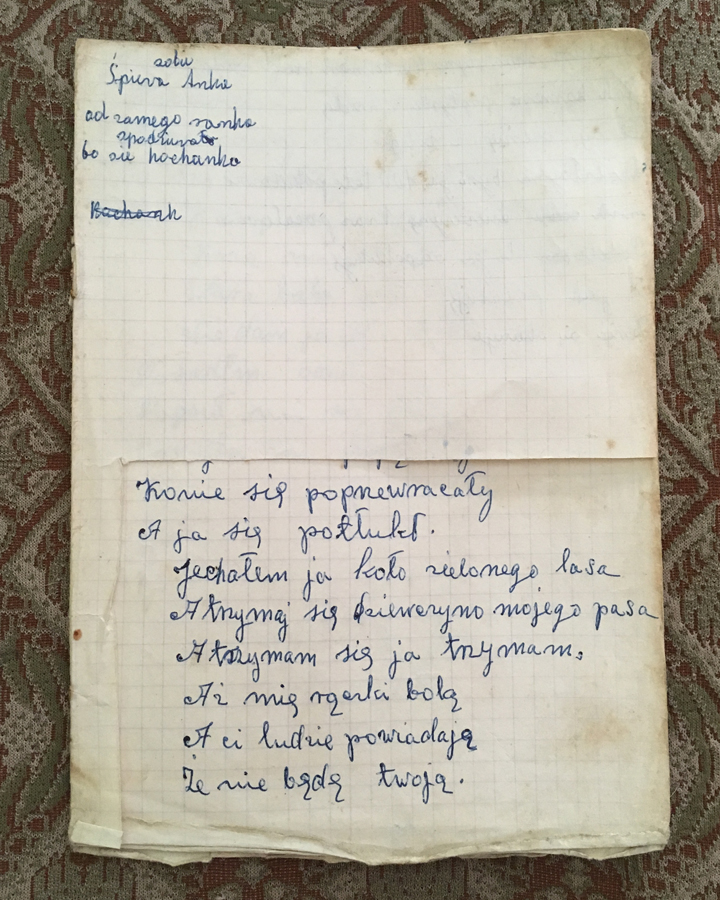 solu
Śpiwa Anka
od samego ranka
spodziwała
bo sie kochanka
Konie się poprzewracały
A ja się potłukł.
Jechałem ja koło zielonego lasa
A trzymaj się dzieweczyno mojego pasa
A trzymam się ja trzymam,
Aż mię rączki bolą
A ci ludzie powiadają
Że nie będę twoją.